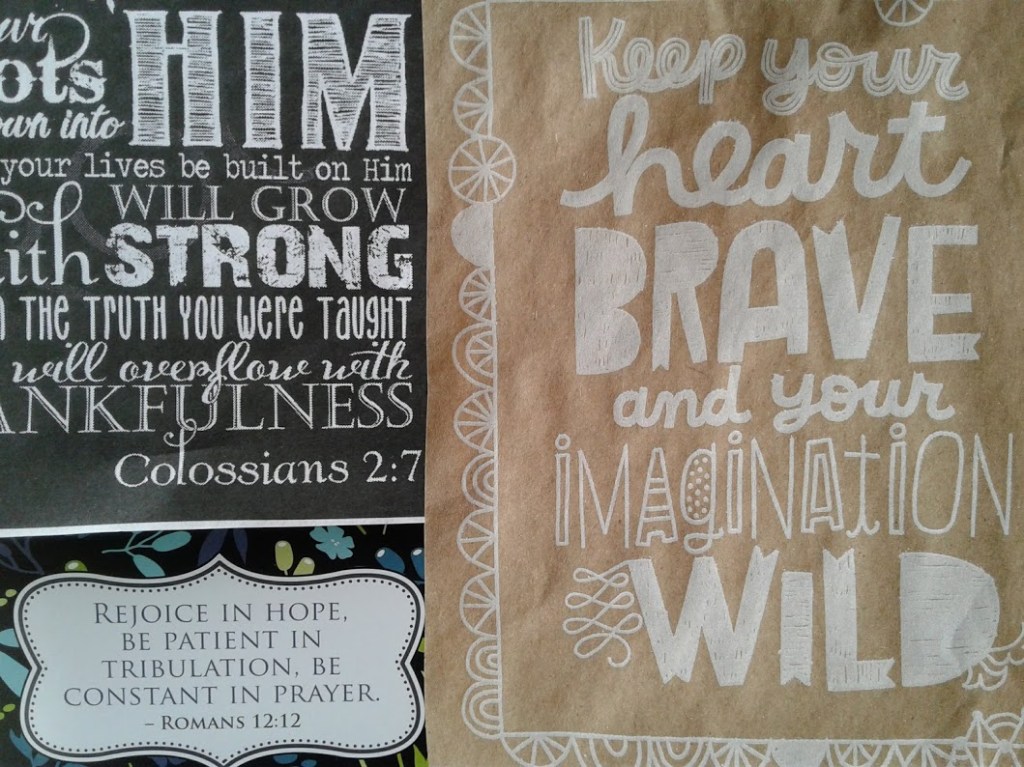 ur
ots
own into
HIM
your lives be built on Him
WILL GROW
ith STRONG
THE TRUTH YOU WERE TAUGHT
will overflow with
ANKFULNESS
Colossians 2:7
REJOICE IN HOPE,
BE PATIENT IN
TRIBULATION, BE
CONSTANT IN PRAYER.
– ROMANS 12:12
Keep your
heart
BRAVE
and your
iMAgiNAtiON
WILD